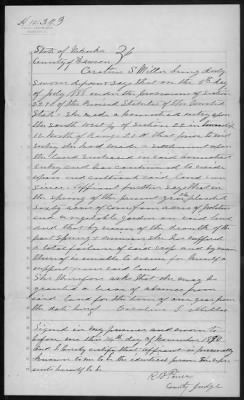 State of Nebraska
County of Dawson
Caroline S. Miller being duly
sworn deposes and says that on the day
of July 188 under the provisions of section
of the Revised Statutes of the United
States she made a homestead entry upon
the south west ¼ of section 22 in township
12 North of Range 21 that prior to said
entry she had made a settlement upon
the land embraced in said homestead
entry and has continued to reside
upon and cultivate said land
since. Affiant further says that in
the spring of the present year planted
and a vegetable garden on said land
and that by reason of the drouth of the
past Spring & summer she has suffered
a total failure of said crops and by reason
thereof is unable to earn for herself a
support upon said land
She therefore asks that she may be
granted a leave of absence from
said land for the term of one year from
the date hereof Caroline S. Miller
Signed in my presence and sworn to
before me this 14th day of November 1890
and I hereby certify that affiant is personally
known to me to be the identical person she represents
herself to be
County Judge